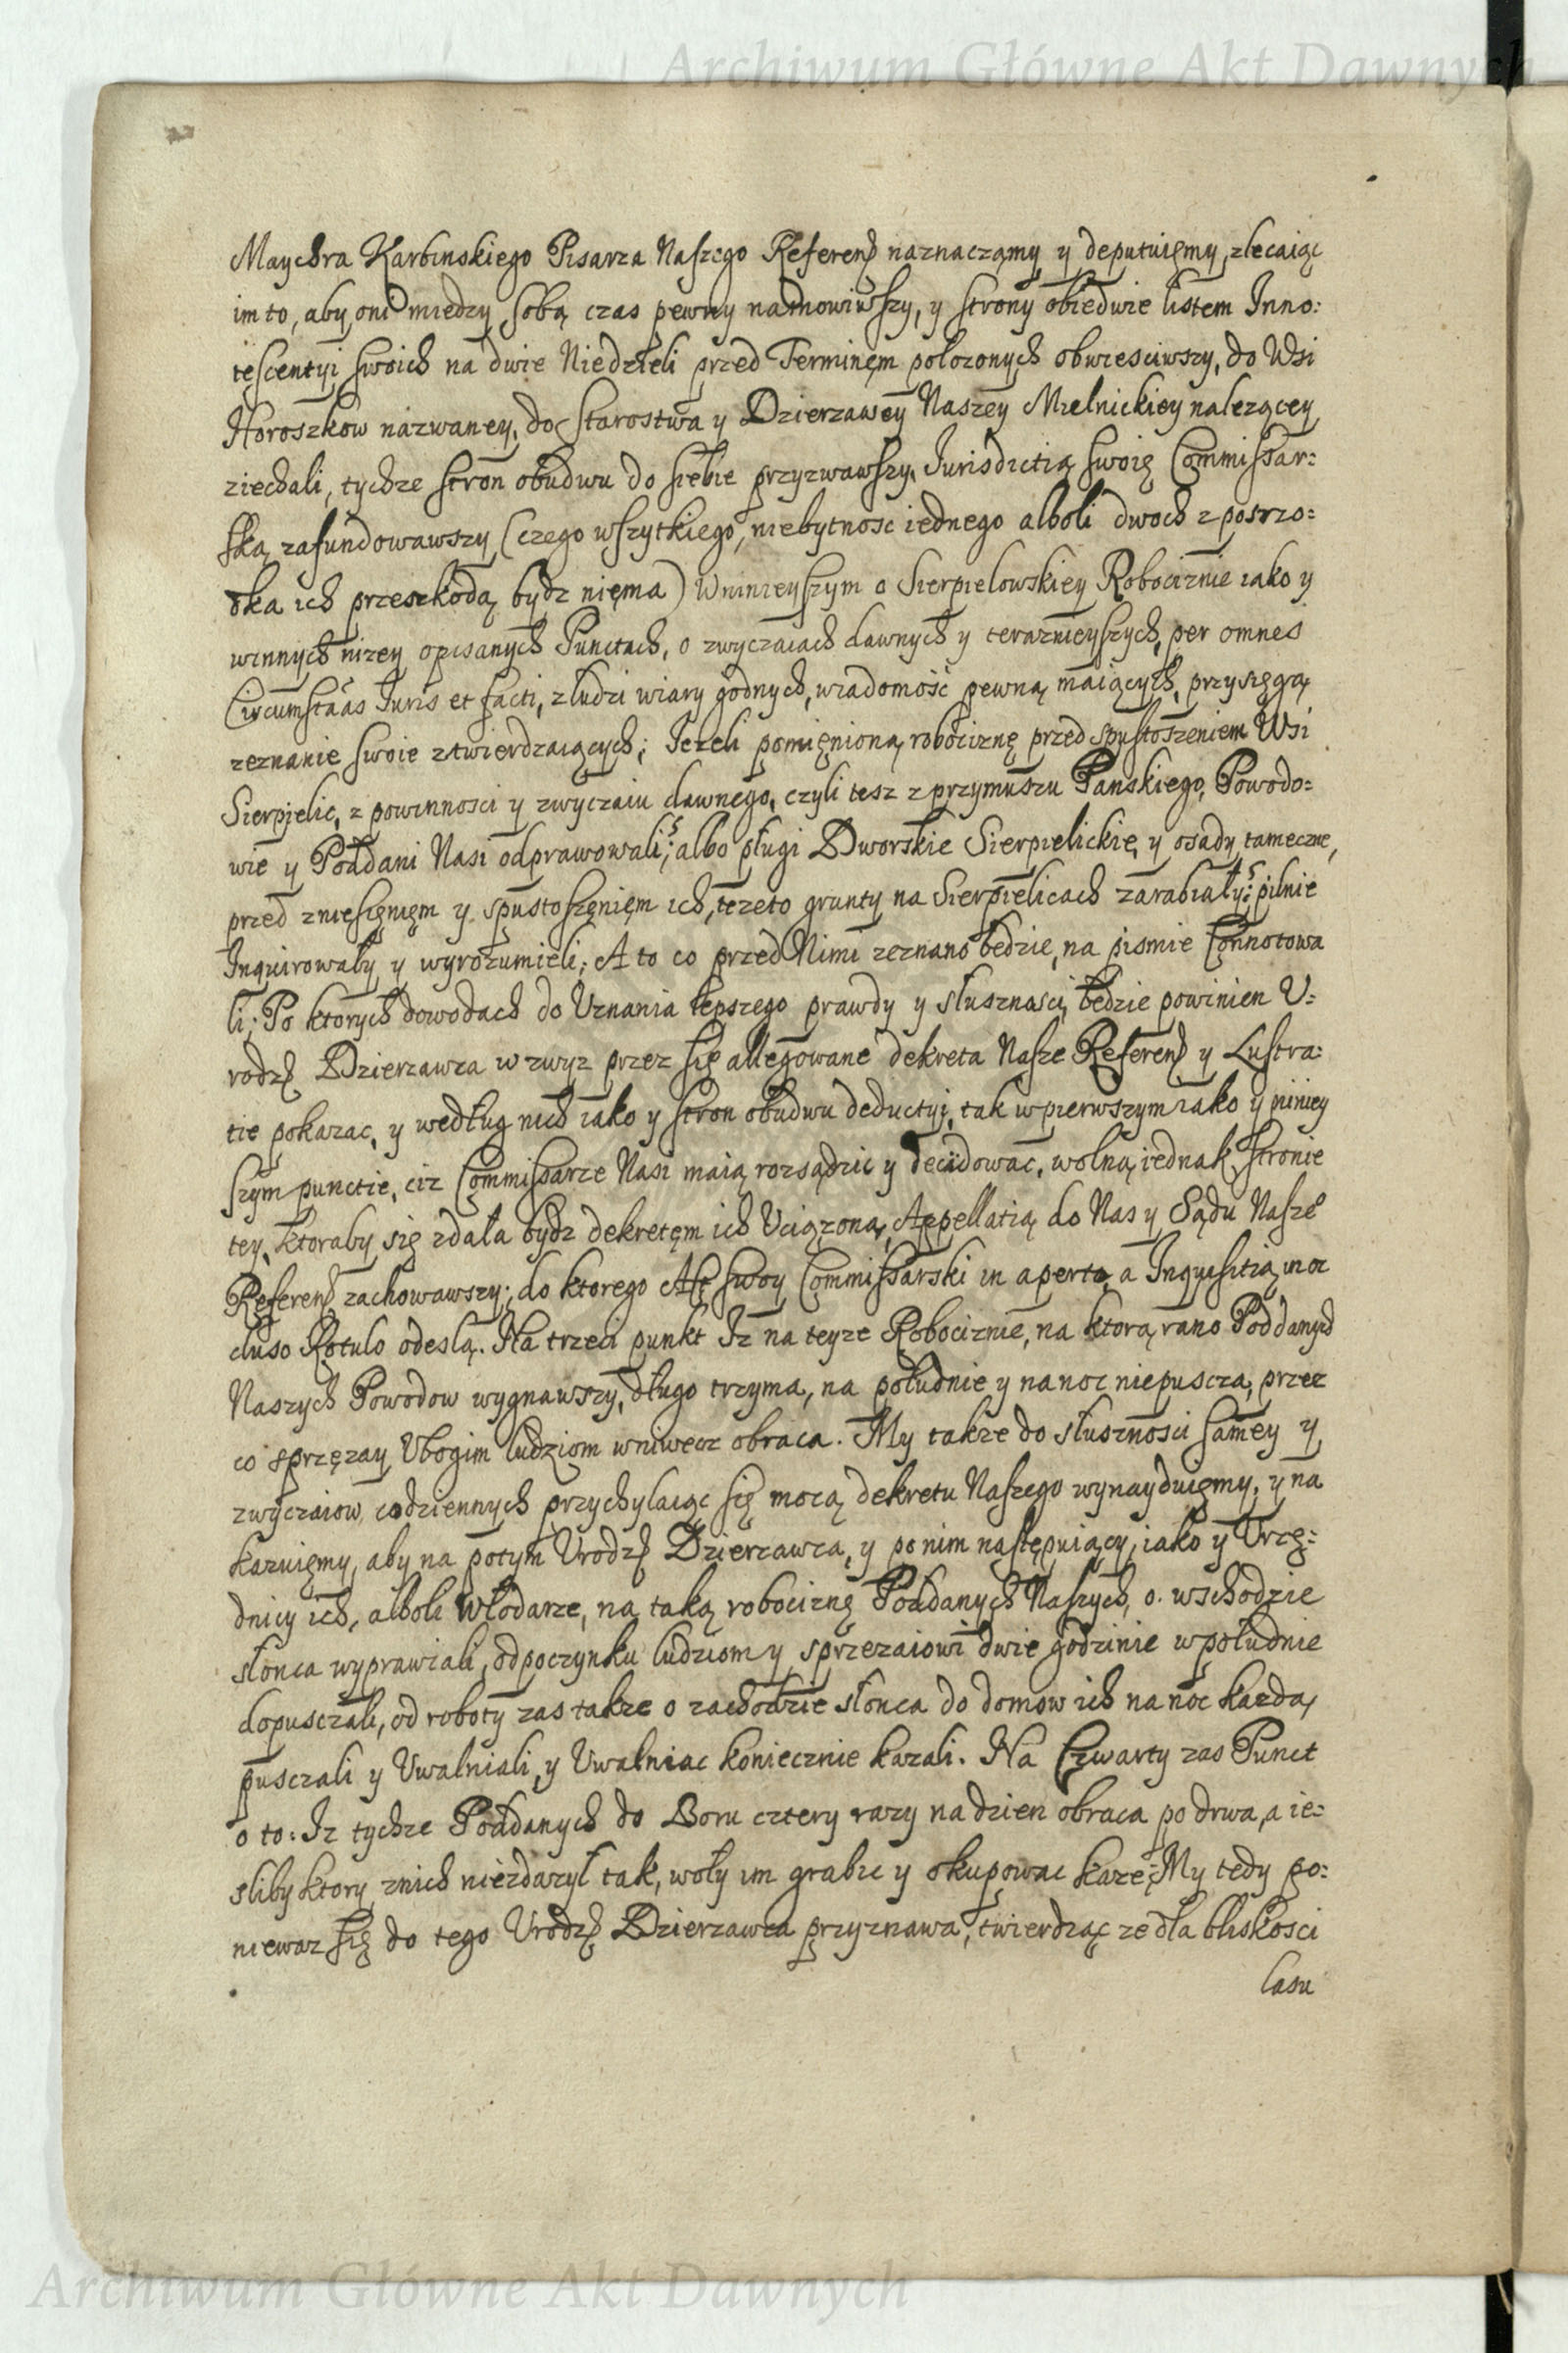 Archiwum Główne Akt Dawnych
Maychra Karbinskiego Pisarza Naszego Referen̄ naznaczamy y deputuięmy, zlecaiąc
im to, aby oni miedzy sobą czas pewny namowiwszy, y strony obiedwie listem Inno:
tescentyi swoich na dwie Niedzieli przed Terminęm polozonych obwiesciwszy, do Wsi
Horoszkow nazwaney, do Starostwa y Dzierzawey Naszey Mielnickiey nalezącey
ziechali, tychze stron obudwu do siebie przyzwawszy, Jurisdictią swoię Commissar:
ską zafundowawszy (czego wszytkiego, niebytnosc iednego alboli dwoch z posrzo:
dka ich przeszkodą bydz nięma) Wninieyszym o Sierpielowskiey Robociznie iako y
winnych nizey opisanych Punctach, o zwyczaiach dawnych y teraznieyszych, per omnes
Circumstãas Juris et facti, z ludzi wiary godnych, wiadomość pewną maiących, przysięgą
zeznanie swoie ztwierdzaiących; Jezeli pomięnioną robociznę przed spustoszeniem Wsi
Sierpielic, z powinnosci y zwyczaiu dawnego, czyli tesz z przymuszu Panskiego, Powodo:
wie y Poddani Nasi odprawowali; albo pługi Dworskie Sierpielickie, y osady tameczne,
przed zniesięnięm y spustoszęnięm ich, tezeto grunty na Sierpielicach zarabiały; pilnie
Inquirowaly y wyrozumieli; A to co przed Nimi zeznano bedzie, na pismie Connotowa
li; Po ktorych dowodach do Uznania lepszego prawdy y słusznasci, będzie powinien U:
rodz̨ Dzierzawca wzwyz przez się allegowane dekreta Nasze Referen̄ y Lustra:
tie pokazac, y według nich iako y stron obudwu deductyi, tak wpierwszym iako y niniey
szym punctie, ciz Commissarze Nasi maią rozsądzic y decidowac, wolną iednak stronie
tey, ktoraby się zdała bydz dekretęm ich Uciązona, Appellatią do Nas y Sądu Naszeº
Referen̄ zachowawszy; do ktorego Akt swoy Commissarski in aperto, a Inquisitią in oc
cluso Rotulo odeslą. Na trzeci punkt Iz na teyze Robociznie, na ktorą rano Poddanych
Naszych Powodow wygnawszy, długo trzyma, na południe y na noc niepuscza, przez
co sprzęzay Ubogim ludziom wniwecz obraca. My takze do słusznosci samey y
zwyczaiow codziennych przychylaiąc się mocą dekretu Naszego wynayduięmy, y na
kazuięmy, aby na potym Urodz̨ Dzierzawca, y po nim następuiący, iako y Urzę:
dnicy ich, alboli Włodarze, na taką robociznę Poddanych Naszych, o wschodzie
słonca wyprawiali, odpoczynku ludziom y sprzezaiowi dwie godzinie wpołudnie
dopusczali, od roboty zas takze o zachodzie słonca do domow ich na noc kazdą
pusczali y Uwalniali, y Uwalniac koniecznie kazali. Na Czwarty zas Punct
o to: Iz tychze Poddanych do Boru cztery razy na dzien obraca po drwa, a ie:
sliby ktory znich niezdazył tak, woły im grabic y okupowac kaze; My tedy po:
niewaz się do tego Urodz̨ Dzierzawca przyznawa, twierdząc ze dla bliskosci
lasu
Archiwum Główne Akt Dawnych